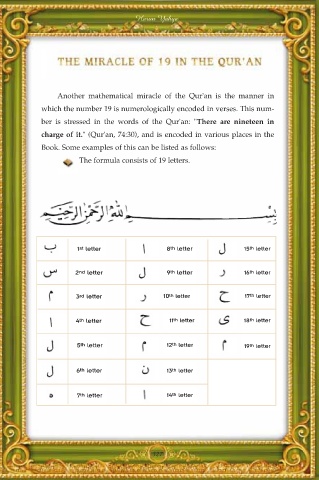 Harun Yahya
THE MIRACLE OF 19 IN THE QUR'AN
Another mathematical miracle of the Qur'an is the manner in
which the number 19 is numerologically encoded in verses. This num-
ber is stressed in the words of the Qur'an: "There are nineteen in
charge of it." (Qur'an, 74:30), and is encoded in various places in the
Book. Some examples of this can be listed as follows:
The formula consists of 19 letters.
بِسْمِ اللهِ الرَّحْمٰنِ الرَّحِيْمِ
ب 1st letter ا 8th letter ل 15th letter
س 2nd letter ل 9th letter ر 16th letter
م 3rd letter ر 10th letter ح 17th letter
ا 4th letter ح 11th letter ى 18th letter
ل 5th letter م 12th letter م 19th letter
ل 6th letter ن 13th letter
ه 7th letter ا 14th letter